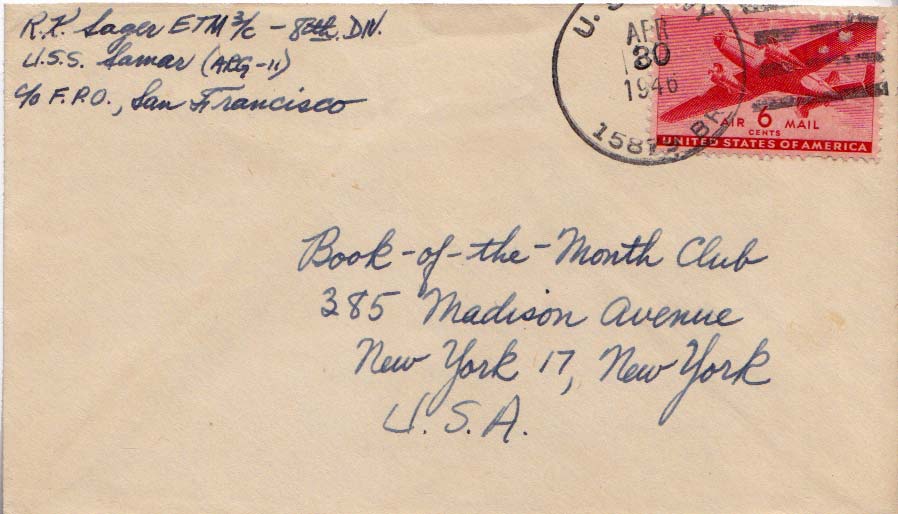 R.K. Sager ETM 3/c - 8th. DIV.
U.S.S. Samar (ARG-11)
c/o F.P.O., San Francisco
U.S.
APR
30
1946
BR.
AIR 6 MAIL
CENTS
UNITED STATES OF AMERICA
Book-of-the-Month Club
385 Madison Avenue
New York 17, New York
U.S.A.